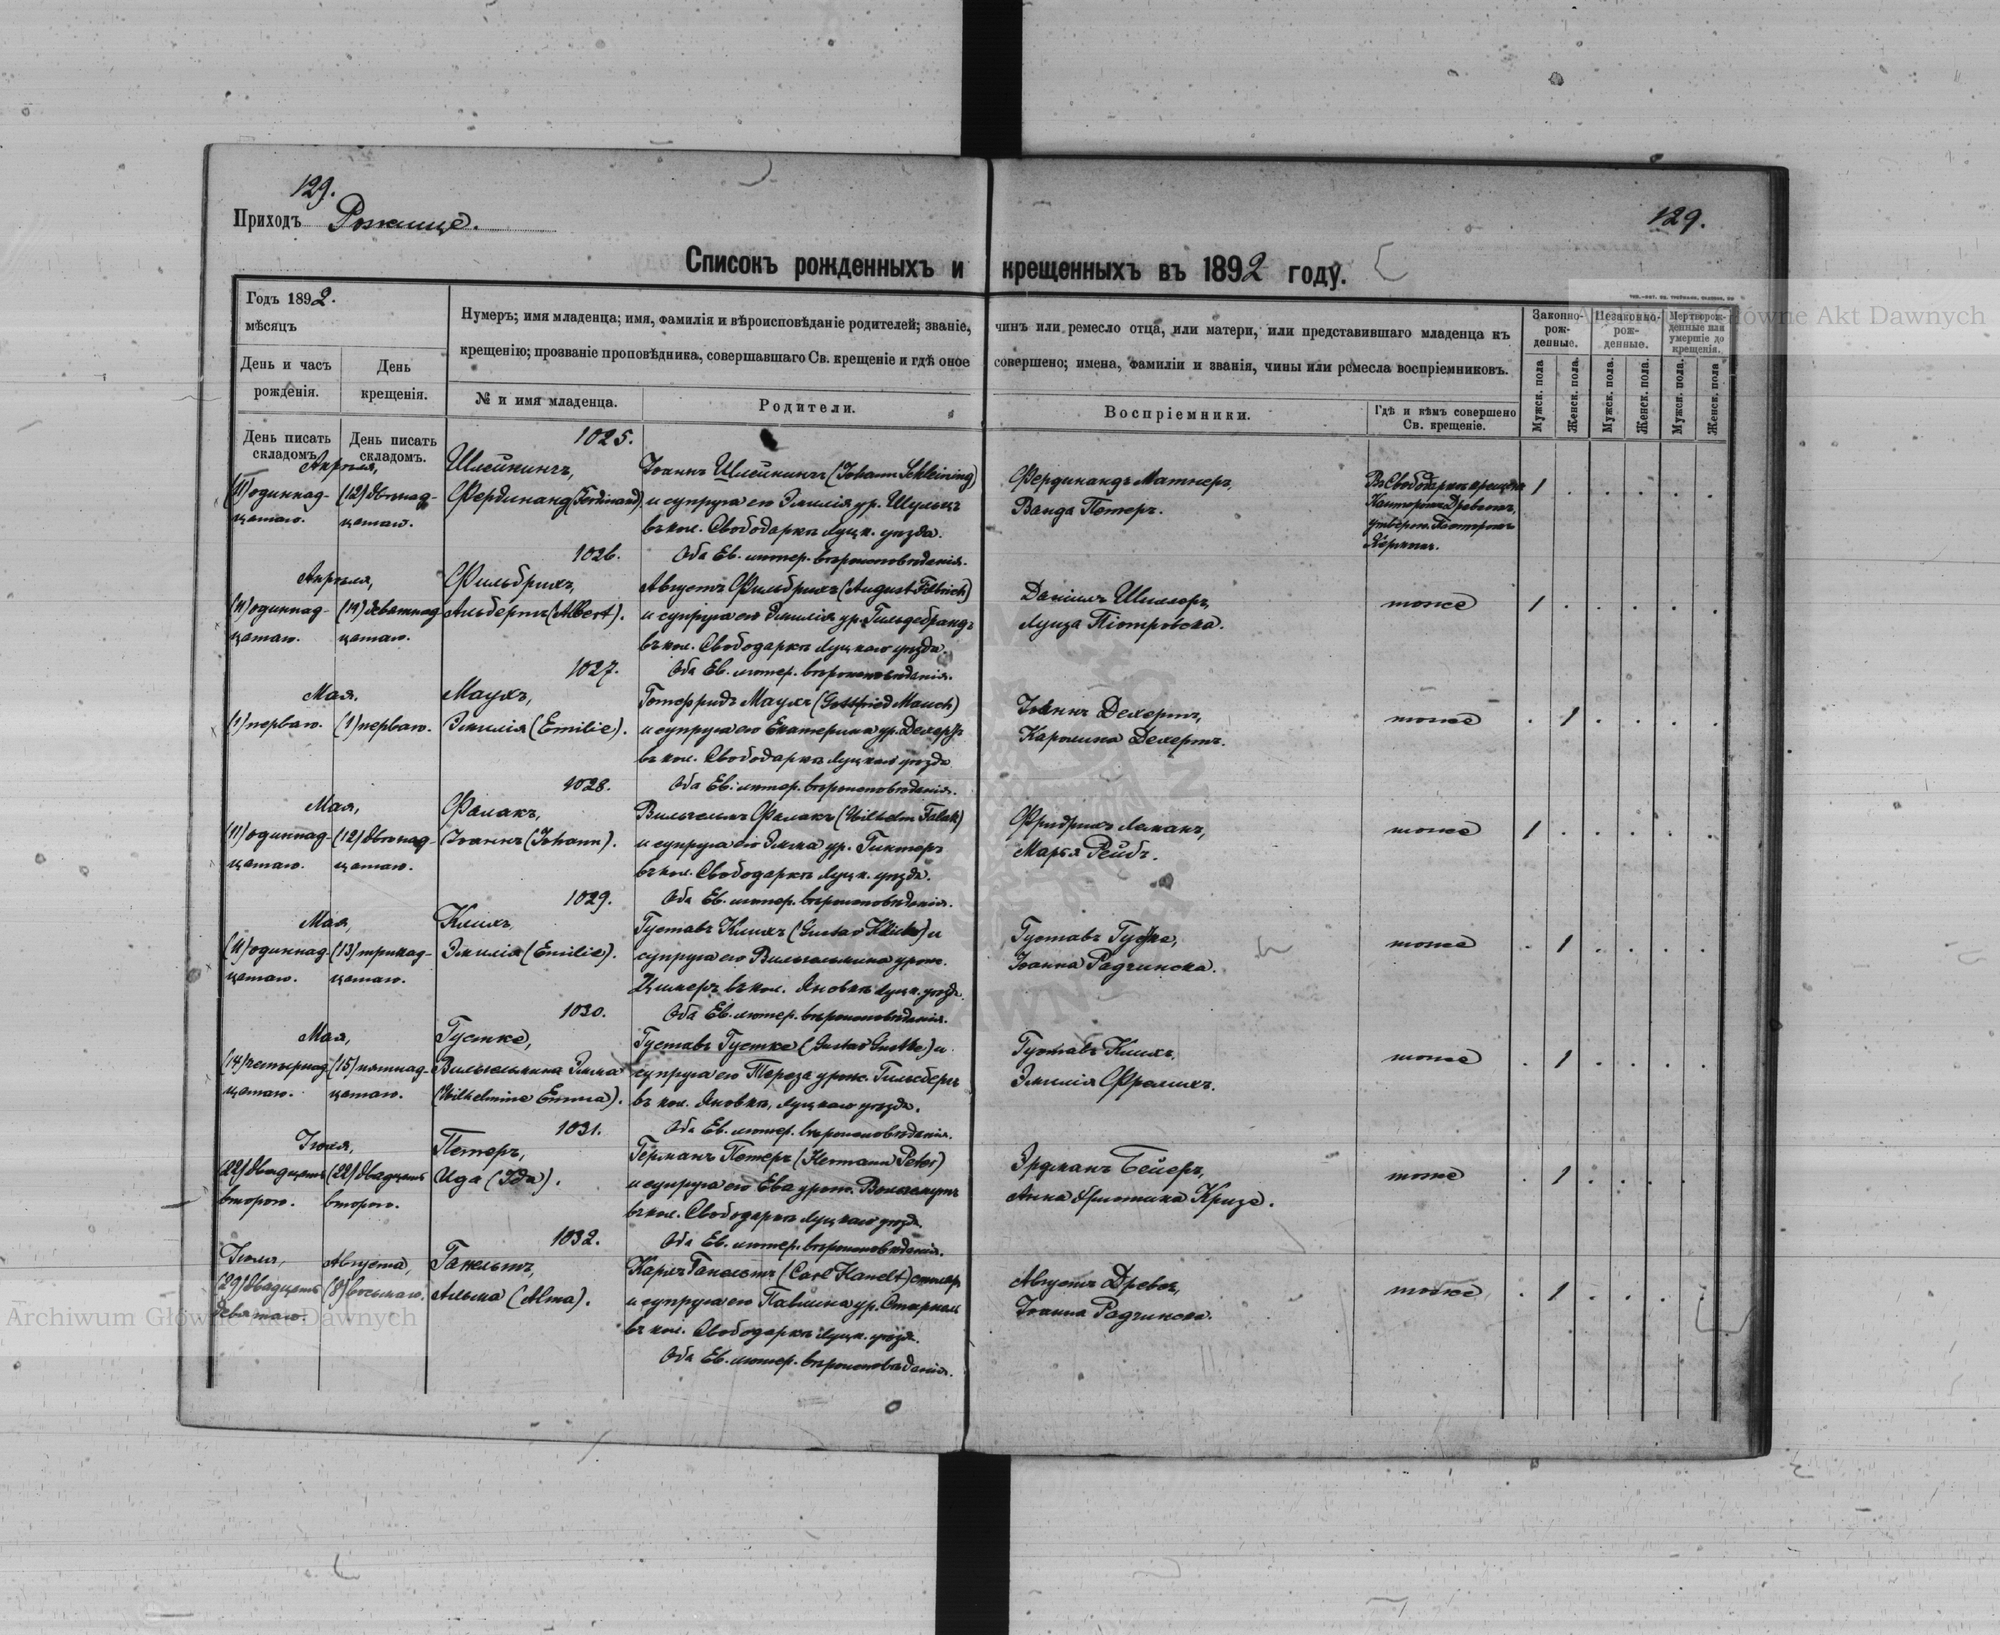 129.
129.
Приходъ Рожище.
Списокъ рожденныхъ и крещенныхъ въ 1892 году.
Годъ 1892.
мѣсяцъ
День и часъ рожденія.
День крещенія.
Нумеръ; имя младенца; имя, фамилія и вѣроисповѣданіе родителей; званіе, чинъ или ремесло отца, или матери, или представившаго младенца къ
крещенію; прозваніе проповѣдника, совершавшаго Св. крещеніе и гдѣ оное совершено; имена, фамиліи и званія, чины или ремесла воспріемниковъ.
№ и имя младенца.
Родители.
Воспріемники.
Гдѣ и кѣмъ совершено Св. крещеніе.
Законно-рож-денные.
Незаконно-рож-денные.
Мертворож-денные или умершіе до крещенія.
Мужск. пола
Женск. пола.
Мужск. пола.
Женск. пола.
Мужск. пола.
Женск. пола
День писать складомъ.
День писать складомъ.
1025.
Апрѣля,
(11) одиннад-
цатаго.
(12) двѣнад-
цатаго.
Шлейнингъ,
Фердинандъ (Ferdinand).
Іоаннъ Шлейнингъ (Johann Schleining)
и супруга его Эмилія ур. Шульцъ
въ кол. Свободаркѣ Луцк. уѣзда.
Оба Ев. лютер. вѣроисповѣданія.
Фердинандъ Матнеръ,
Ванда Петеръ.
Въ Свободаркѣ крещенъ
Канторомъ Древсомъ,
утвержд. Пасторомъ
1
1026.
Апрѣля,
(11) одиннад-
цатаго.
(19) девятнад-
цатаго.
Фильбрихъ,
Альбертъ (Albert).
Августъ Фильбрихъ (August Filbrich)
и супруга его Эмилія ур. Гильдебрандъ
въ кол. Свободаркѣ Луцкаго уѣзда.
Оба Ев. лютер. вѣроисповѣданія.
Даніилъ Шиллеръ,
Луиза Піотровска.
тоже
1
1027.
Мая,
(1) перваго.
(1) перваго.
Маухъ,
Эмилія (Emilie).
Готфридъ Маухъ (Gottfried Mauch)
и супруга его Екатерина ур. Дехертъ
въ кол. Свободаркѣ Луцкаго уѣзда
Оба Ев. лютер. вѣроисповѣданія.
Іоаннъ Дехертъ,
Каролина Дехертъ.
тоже
1
1028.
Мая,
(11) одиннад-
цатаго.
(12) двѣнад-
цатаго.
Фалакъ,
Іоаннъ (Johann).
Вильгельмъ Фалакъ (Wilhelm Falak)
и супруга его Эмма ур. Гинтеръ
въ кол. Свободаркѣ Луцк. уѣзда.
Оба Ев. лютер. вѣроисповѣданія.
Фридрихъ Леманъ,
Марья Рейбъ.
тоже
1
1029.
Мая,
(11) одиннад-
цатаго.
(13) тринад-
цатаго.
Климъ,
Эмилія (Emilie).
Густавъ (Gustav) и
супруга его Вильгельмина урож.
Цимеръ въ кол. Яновкѣ Луцк. уѣзда.
Оба Ев. лютер. вѣроисповѣданія.
Густавъ Густке,
Іоанна Радчинска.
тоже
1
1030.
Мая,
(14) четырнад-
цатаго.
(15) пятнад-
цатаго.
Густке,
Вильгельмина Эмма
(Wilhelmine Emma).
Густавъ Густке (Gustav Gustke) и
супруга его Тереза урож. Гильсберъ
въ кол. Яновкѣ, Луцкаго уѣзда.
Оба Ев. лютер. вѣроисповѣданія.
Густавъ
Эмилія Фрелихъ.
тоже
1
1031.
Іюля,
(22) двадцать
второго.
(22) двадцать
второго.
Петеръ,
Ида (Ida).
Германъ Петеръ (Hermann Peter)
и супруга его Ева урож.
въ кол. Свободаркѣ Луцкаго уѣзда.
Оба Ев. лютер. вѣроисповѣданія.
Эрдманъ Бейеръ,
Анна Христина Кризе.
тоже
1
1032.
Іюля,
(29) двадцать
девятаго.
Августа,
(8) восьмаго.
Ганельтъ,
Альма (Alma).
Карлъ Ганельтъ (Carl Hanelt) столяръ
и супруга его Павлина ур.
въ кол. Свободаркѣ Луцк. уѣзда.
Оба Ев. лютер. вѣроисповѣданія.
Августъ Древсъ,
Іоанна Радчинска.
тоже
1
Archiwum Główne Akt Dawnych
Główne Akt Dawnych